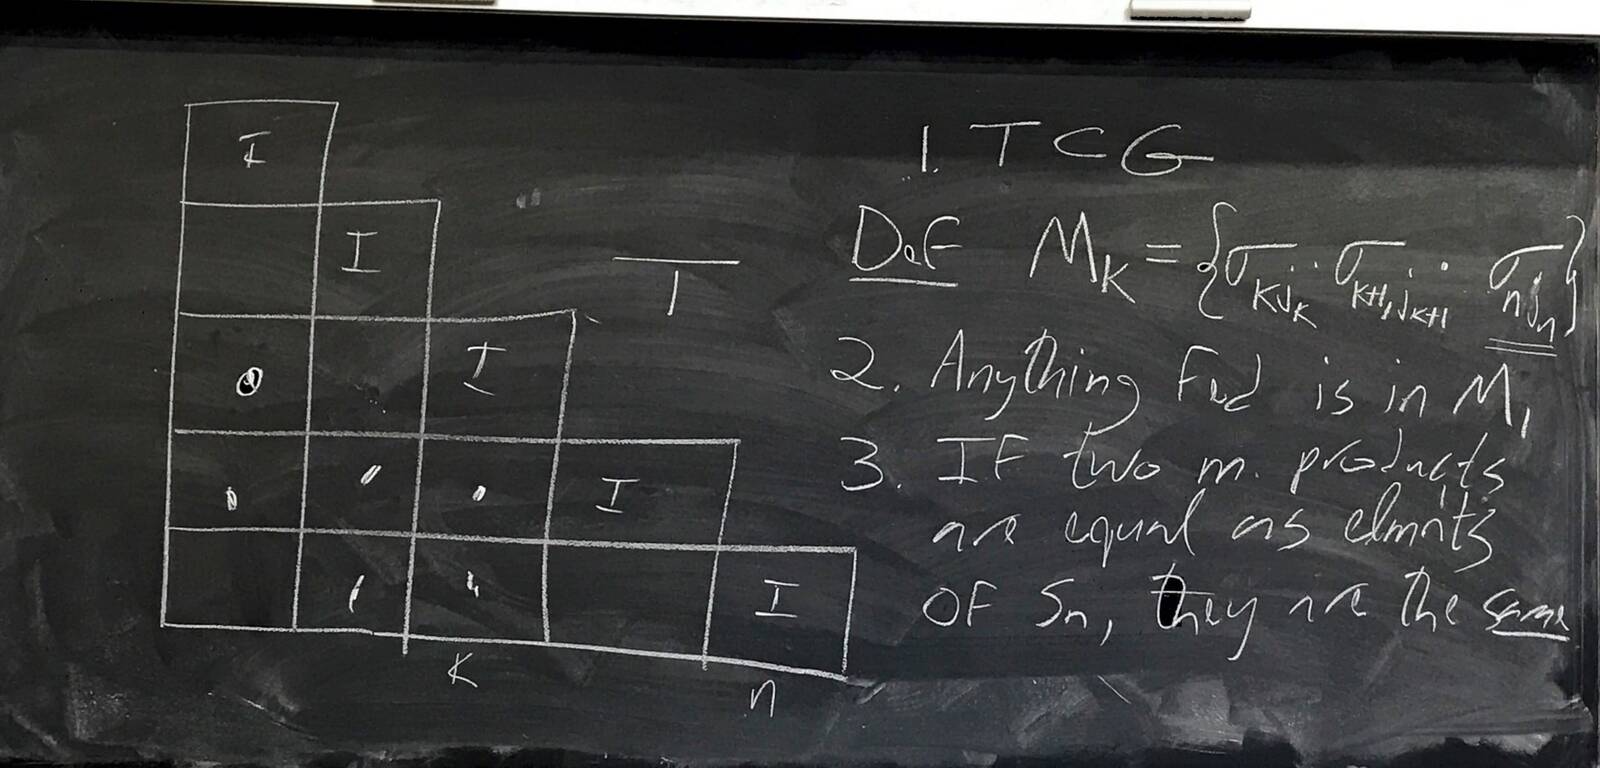 I
I
I
I
I
K
n
T
1. TCG
Def M_K = {σ_{Kj_K} · σ_{K+1,j_{K+1}} · · σ_{nj_n}}
2. Anything Fed is in M_1
3. IF two m. products
are equal as elmnts
OF S_n, they are the same